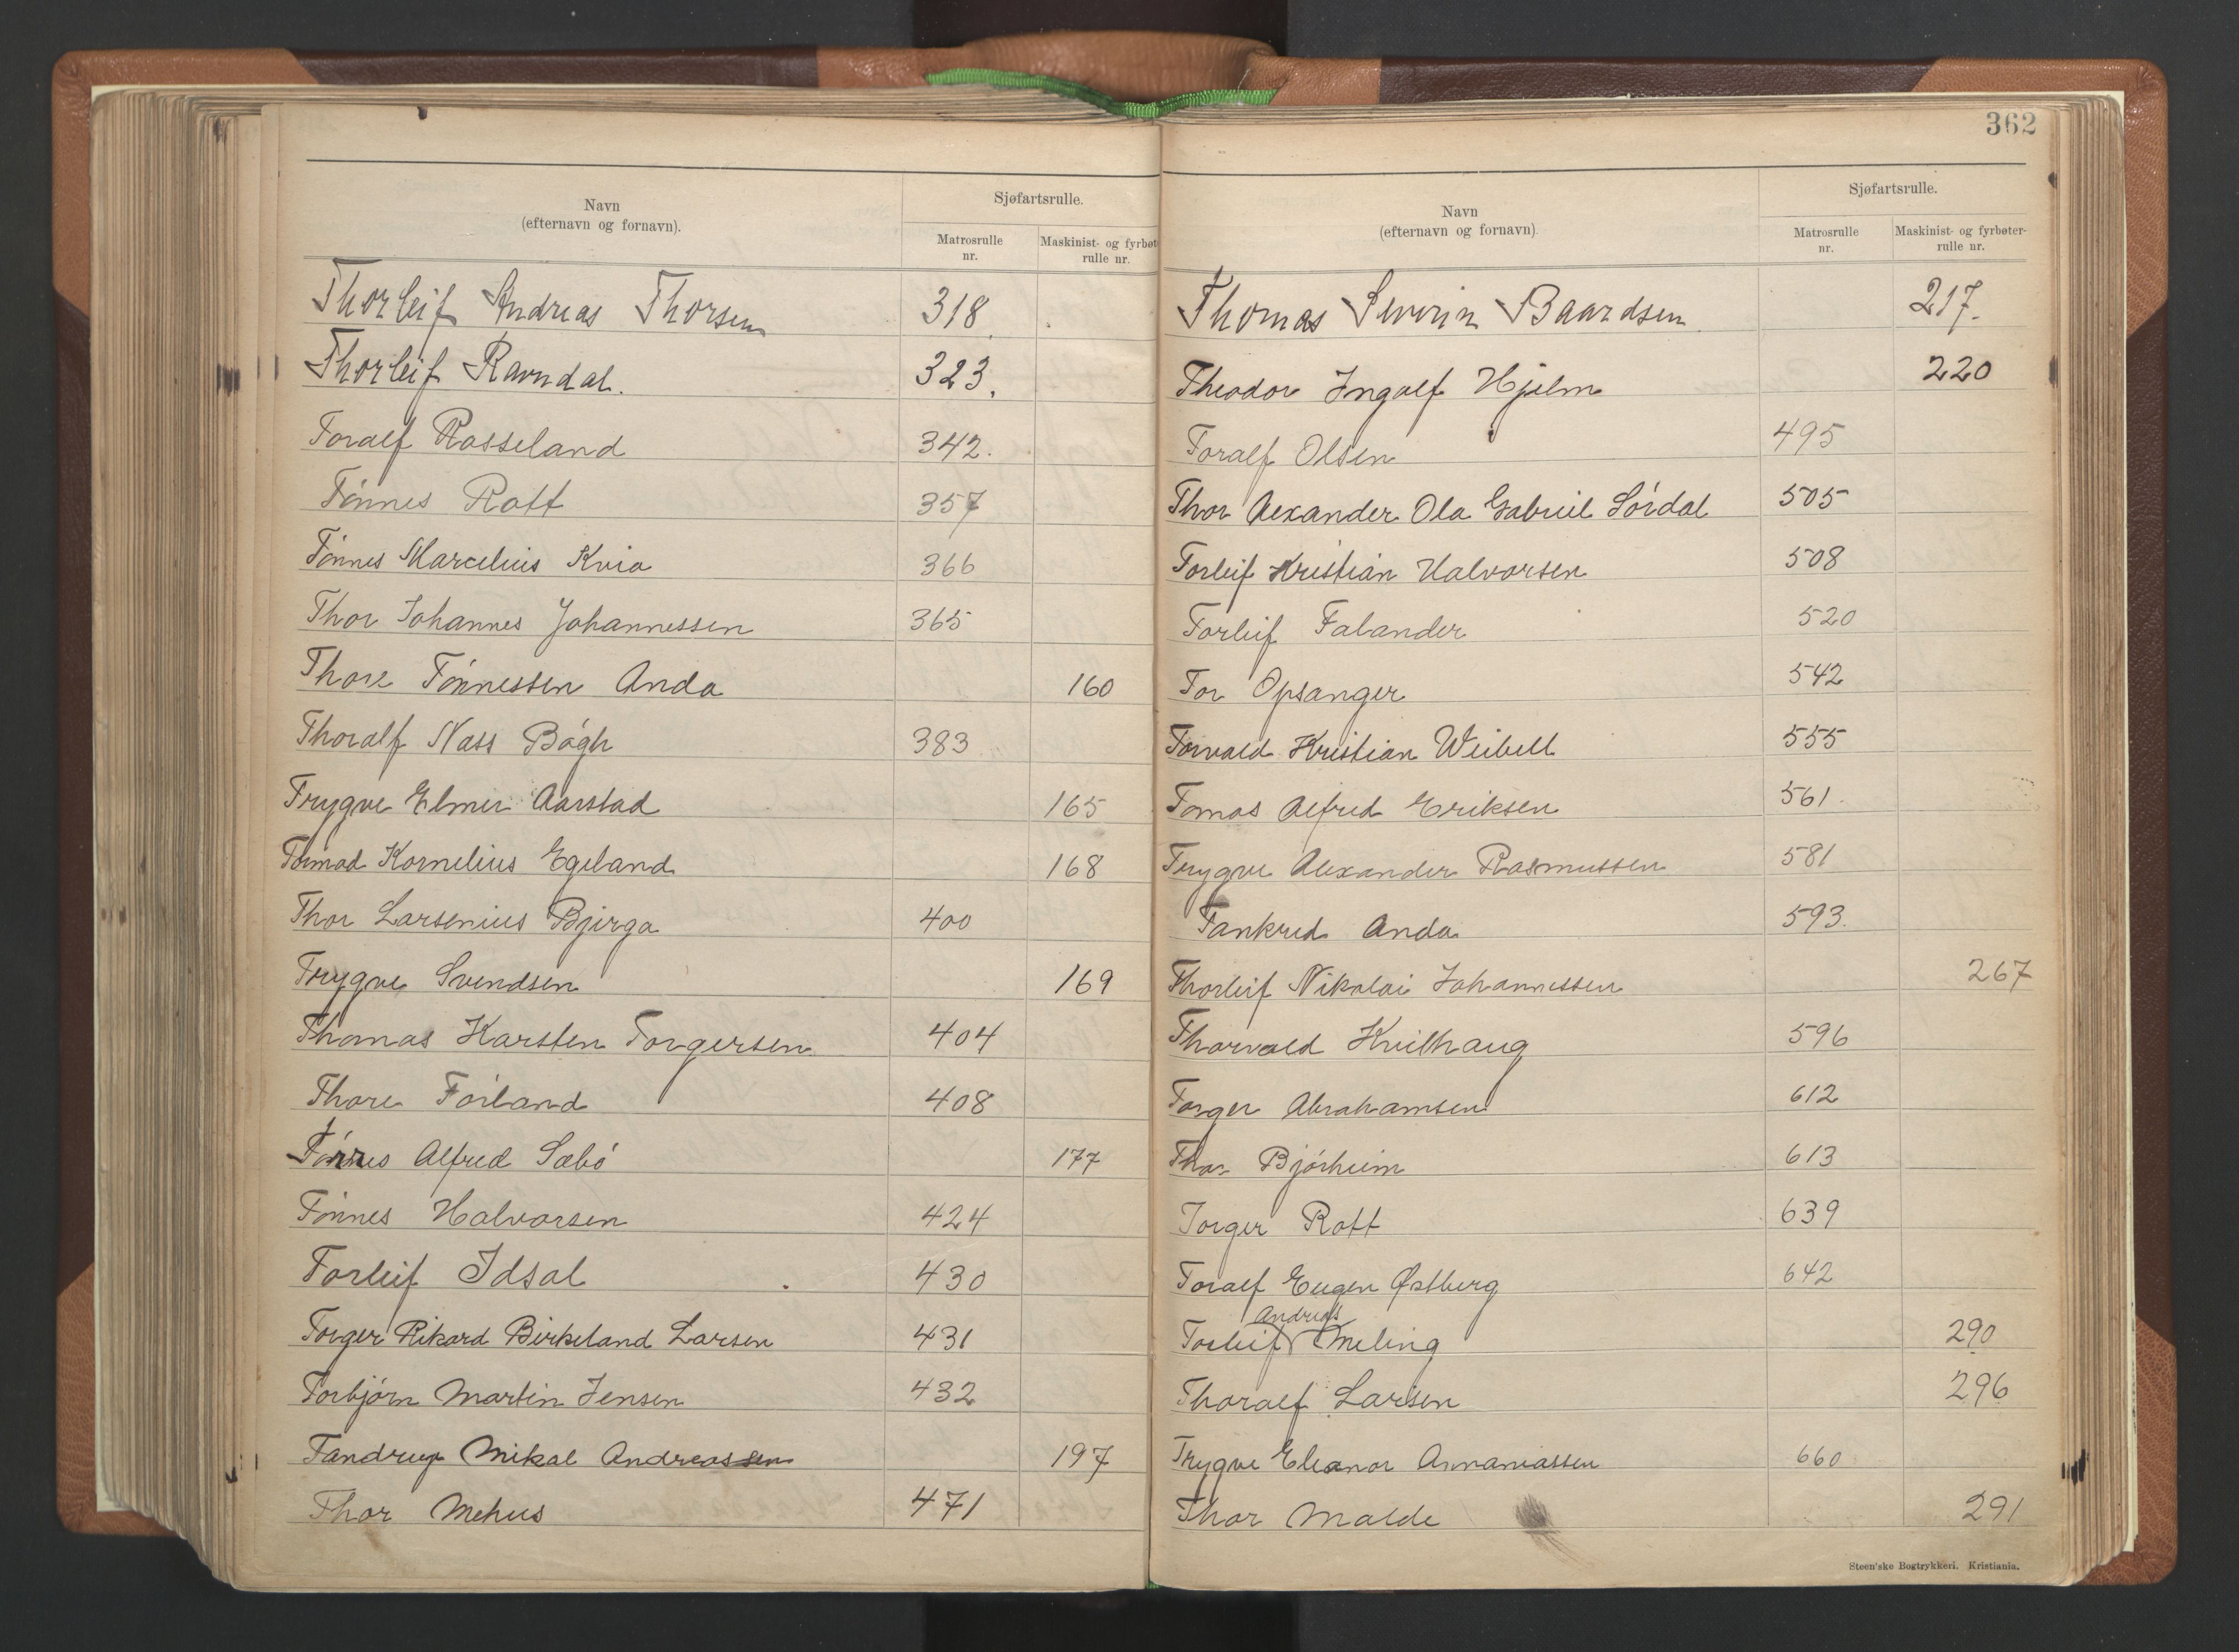 Navn
(efternavn og fornavn).
Sjøfartsrulle.
Matrosrulle nr.
Maskinist- og fyrbøt
rulle nr.
Thorleif Andreas Thorsen 318.
Thorleif Ravndal. 323.
Toralf Rosseland 342.
Tönnes Rott 357
Tönnes Marcelius Kvia 366
Thor Johannes Johannessen 365
Thore Tönnessen Anda 160
Thoralf Nass Bögh 383
Trygve Elmer Aarstad 165
Tormod Kornelius Egeland 168
Thor Larsenius Bjerga 400
Trygve Svendsen 169
Thomas Karsten Torgersen 404
Thore Förland 408
Törres Alfred Sæbö 177
Tönnes Halvorsen 424
Torleif Idsal 430
Torger Rikard Birkeland Larsen 431
Torbjörn Martin Jensen 432
Tandrup Mikal Andreassen 197
Thor Mehus 471
362
Navn
(efternavn og fornavn).
Sjøfartsrulle.
Matrosrulle nr.
Maskinist- og fyrbøter-
rulle nr.
Thomas Severin Baardsen. 217.
Theodor Ingolf Hjelm 220
Toralf Olsen 495
Thor Alexander Ola Gabriel Sördal 505
Torleif Kristian Halvorsen 508
Torleif Falander 520
Tor Opsanger 542
Torvald Kristian Weibell 555
Tomas Alfred Eriksen 561.
Trygve Alexander Rasmussen 581
Tankred Anda 593.
Thorleif Nikolai Johannessen 267
Thorvald Kvilhaug 596
Torger Abrahamsen 612
Thor Bjórheim 613
Torger Rott 639
Toralf Eugen Østberg 642
Andreas
Torleif Meling 290
Thoralf Larsen 296
Trygve Eleanor Annaniassen 660
Thor Malde 291
Steen'ske Bogtrykkeri. Kristiania.